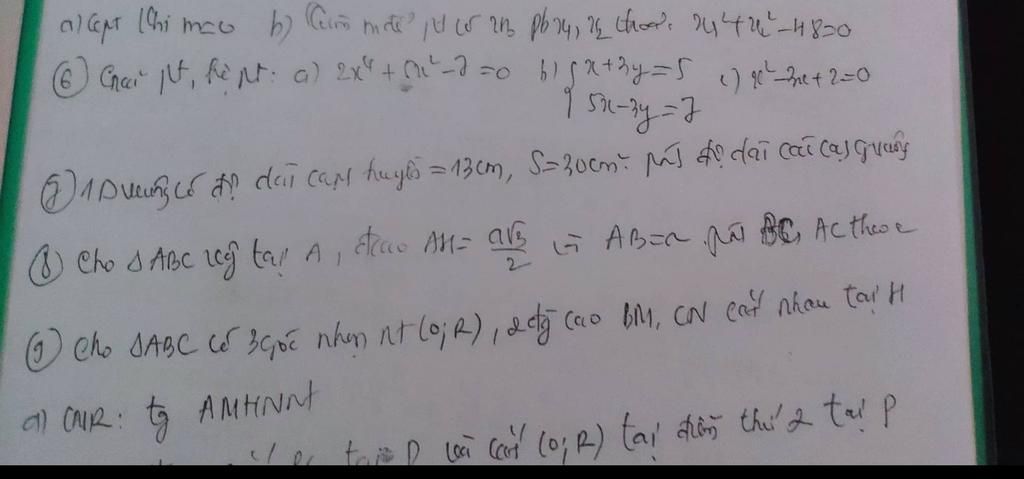 a) Gpt khi m=0 b) Tìm m để pt có 2n pb x₁, x₂ thoả: x₁²+x₂²-48=0
⑥ Giải pt, hệ pt: a) 2x⁴ + 5x² - 7 = 0 b) { x + 3y = 5 c) x² - 3x + 2 = 0
5x - 3y = 7
⑦ 1Δ vuông có độ dài cạnh huyền = 13cm, S = 30cm² độ dài các cạ góc vuông
⑧ Cho ΔABC vuông tại A, đ cao AH = a√3/2 và AB = a BC, AC theo a
⑨ Cho ΔABC có 3 góc nhọn nt (O;R), 2 đg cao BM, CN cắt nhau tại H
a) CMR: tg AMHN nt
tại D và cắt (O;R) tại điểm thứ 2 tại P